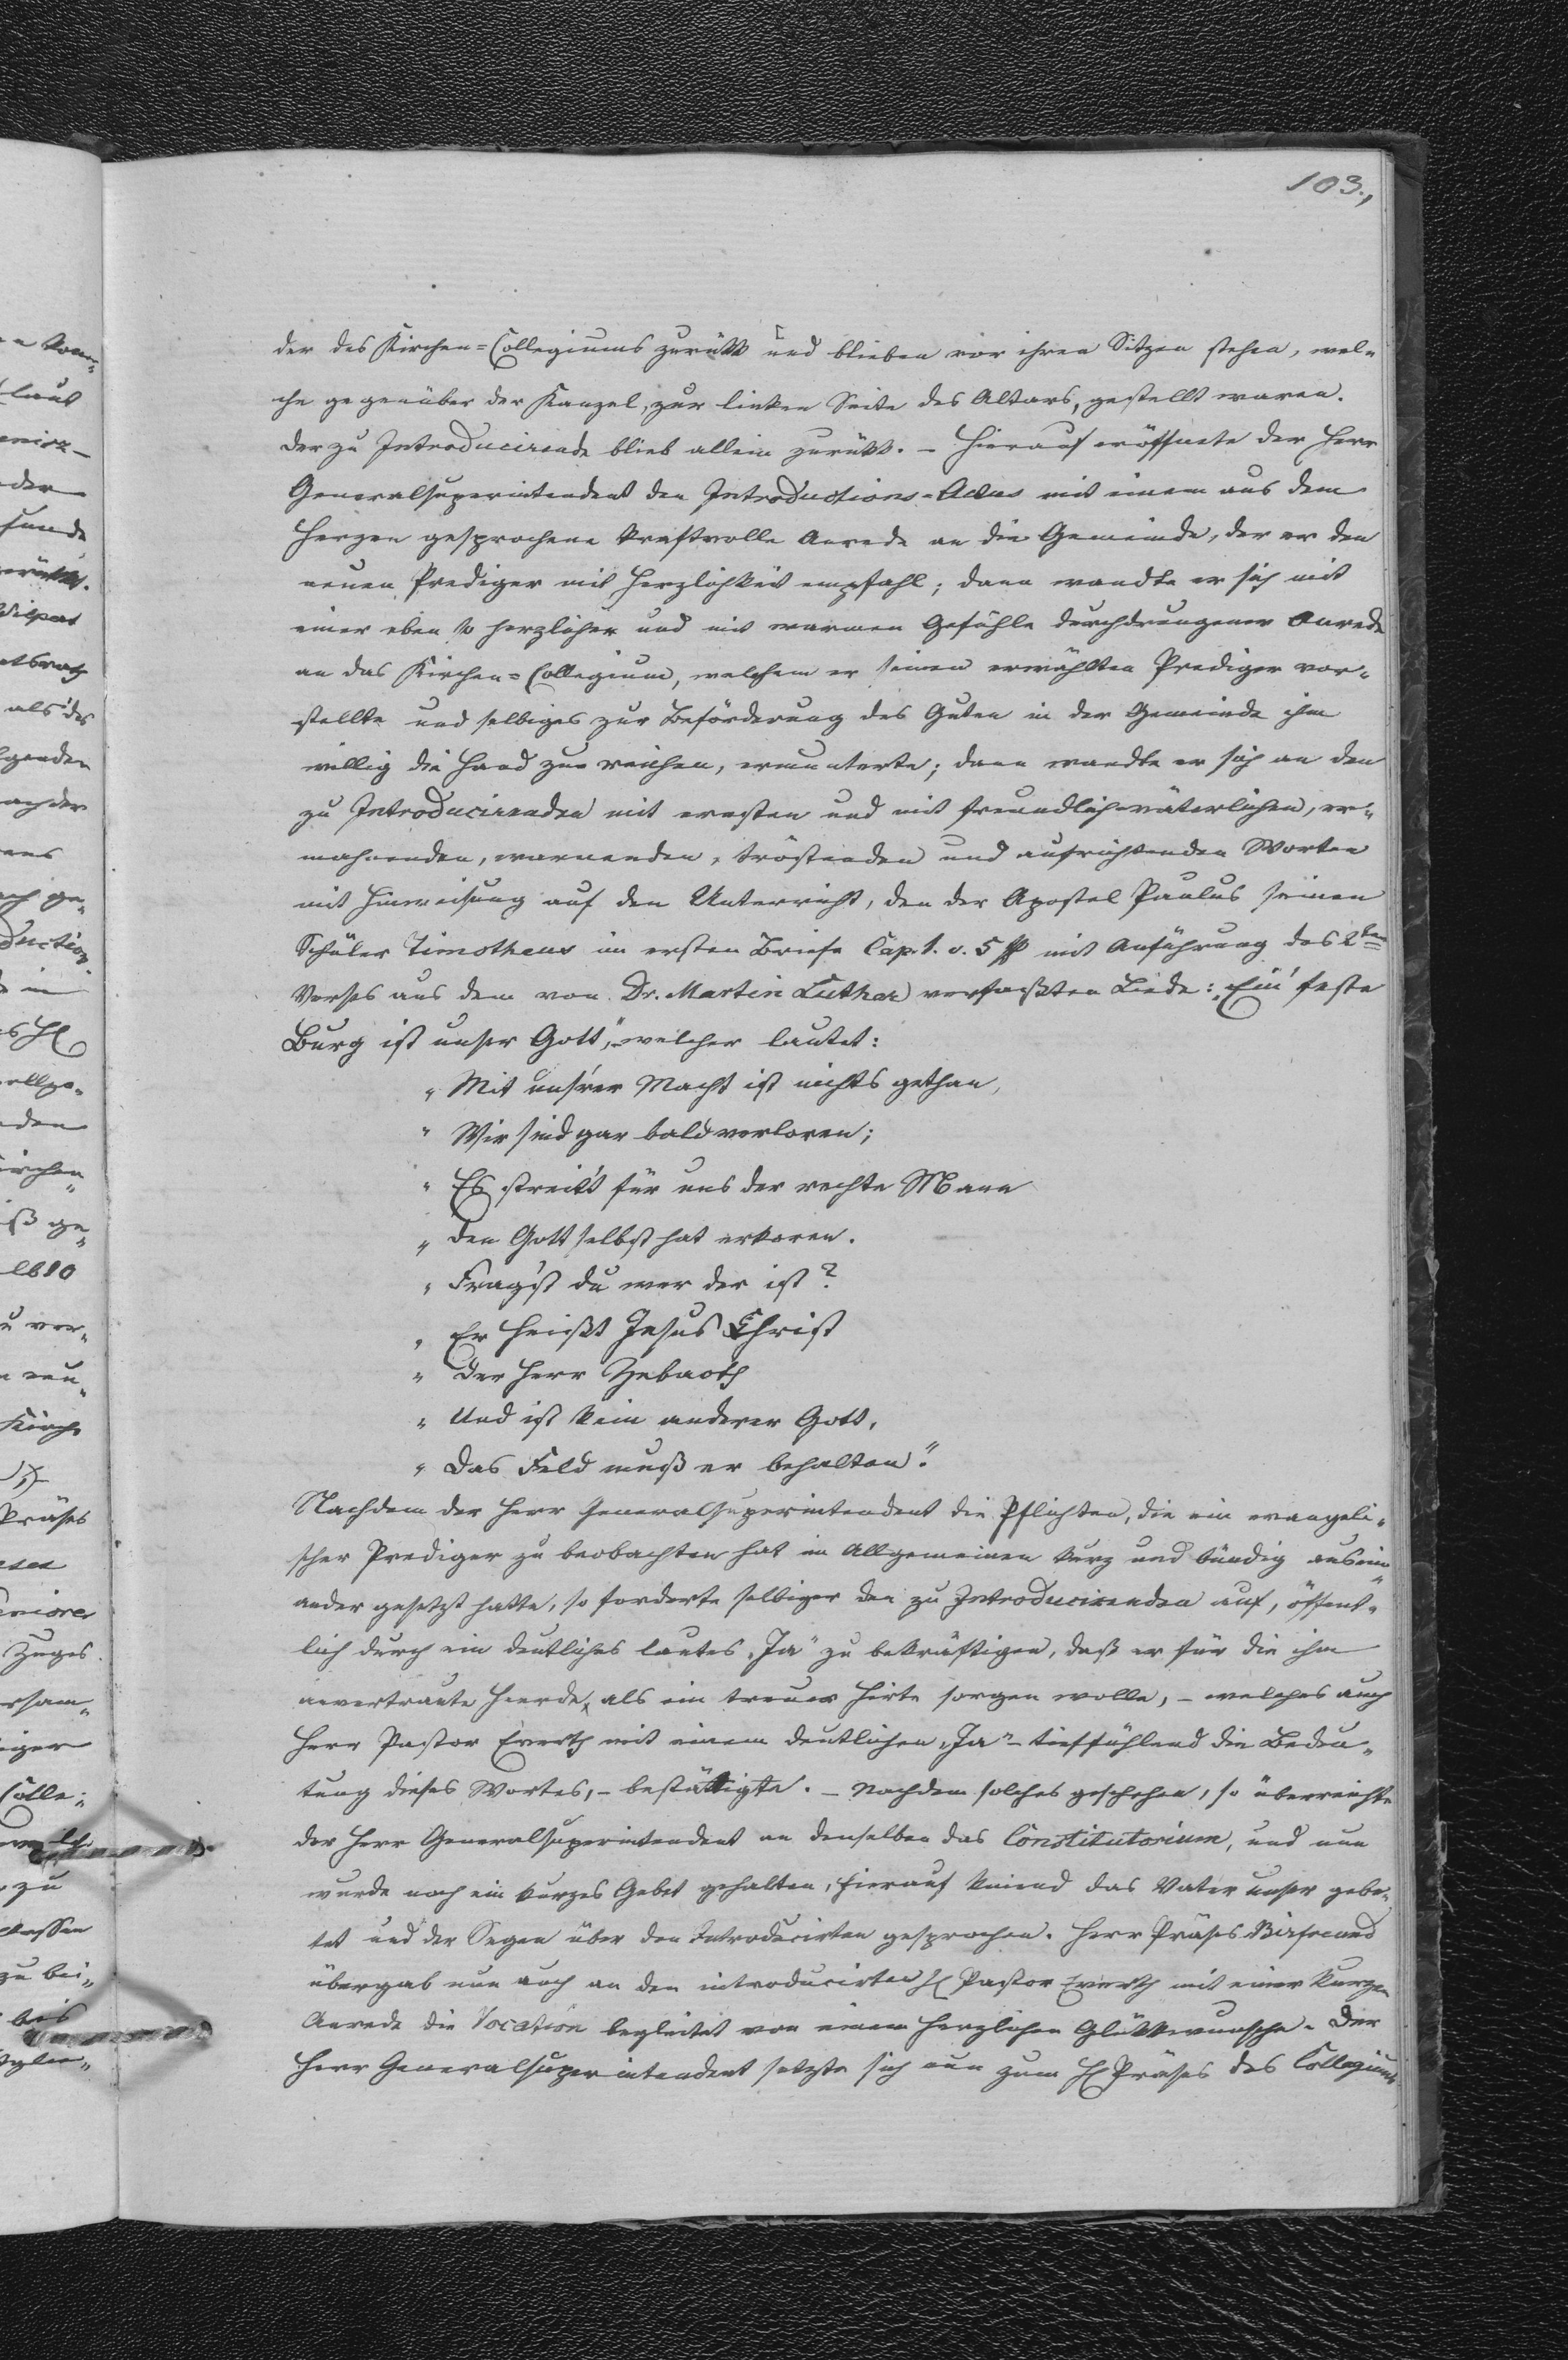 103.,
der des Kirchen=Collegiums zurükk und blieben vor ihren Sitzen stehen, wel„
che gegenüber der Kanzel, zur linken Seite des Altars, gestellt waren.
Der zu Introducirende blieb allein zurükk. – Hierauf eröffnete der Herr
Generalsuperintendent den Introductions=Actus mit einem aus dem
Herzen gesprochene kraftvolle Anrede an die Gemeinde, der er den
neuen Prediger mit Herzlichkeit empfahl; dann wandte er sich mit
einer eben so herzlicher und mit warmen Gefühle durchdrungener Anrede
an das Kirchen=Collegium, welchem er seinen erwählten Prediger vor„
stellte und selbiges zur Beförderung des Guten in der Gemeinde ihm
willig die Hand zu reichen, ermunterte; dann wandte er sich an den
zu Introducirenden mit ernsten und mit freundlich-väterlichen, er„
mahnenden, warnenden, tröstenden und aufrichtenden Worten
mit Hinweisung auf den Unterricht, den der Apostel Paulus seinen
Schüler Timotheus im ersten Briefe Cap. 1. v. 5 ff mit Anführung des 2ten
Verses aus dem von Dr. Martin Luther verfaßten Liede: „Ein' feste
Burg ist unser Gott," welcher lautet:
„ Mit uns'rer Macht ist nichts gethan,
„ Wir sind gar bald verloren;
„ Es streit't für uns der rechte Mann
„ den Gott selbst hat erkoren.
„ Frag'st du wer der ist?
„ Er heißt Jesus Christ
„ der Herr Zebaoth
„ Und ist kein anderer Gott,
„ Das Feld muß er behalten."
Nachdem der Herr Generalsuperintendent die Pflichten, die ein evangeli„
scher Prediger zu beobachten hat im Allgemeinen kurz und bündig ausein„
ander gesetzt hatte, so forderte selbiger den zu Introducirenden auf, öffent„
lich durch ein deutliches lautes „Ja" zu bekräftigen, daß er für die ihm
anvertraute Heerde, als ein treuer Hirte sorgen wolle, – welches auch
Herr Pastor Everth mit einem deutlichen „Ja" – tieffühlend die Bedeu„
tung dieses Wortes, – bestättigte. – Nachdem solches geschehen, so überreichte
der Herr Generalsuperintendent an denselben das Constitutorium, und nun
wurde noch ein kurzes Gebet gehalten, hierauf knieend das Vater unser gebe„
tet und der Segen über den Introducirten gesprochen. Herr Präses
übergab nun auch an den introducirten H Pastor Everth mit einer kurzen
Anrede die Vocation begleitet von einem herzlichen Glükkwunsche. Der
Herr Generalsuperintendent setzte sich nun zum H Präses des Collegiums